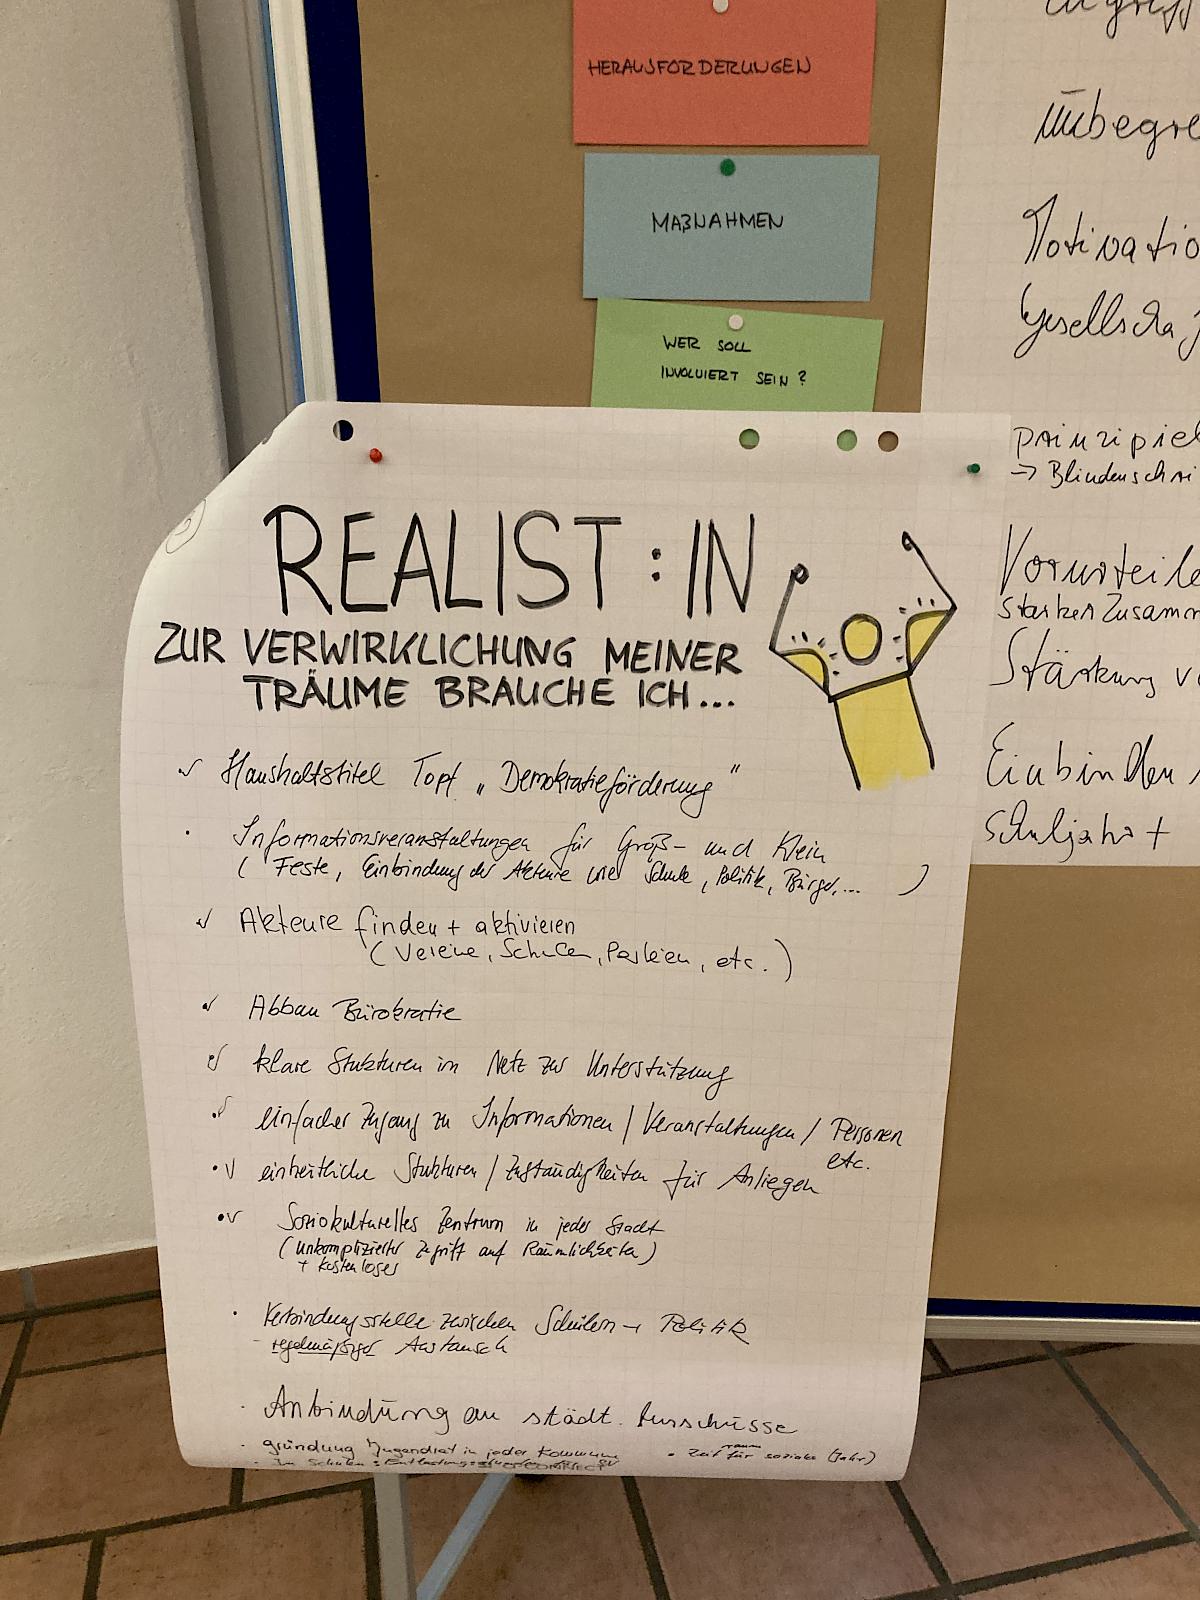 HERAUSFORDERUNGEN
MAßNAHMEN
WER SOLL
INVOLVIERT SEIN?
REALIST:IN
ZUR VERWIRKLICHUNG MEINER
TRÄUME BRAUCHE ICH...
Haushaltstitel Topf „Demokratieförderung"
· Informationsveranstaltungen für Groß- und Klein
(Feste, Einbindung der Akteure wie Schule, Politik, Bürger,... )
Akteure finden + aktivieren
(Vereine, Schulen, Parteien, etc.)
Abbau Bürokratie
klare Strukturen im Netz zur Unterstützung
einfacher Zugang zu Informationen / Veranstaltungen / Personen
etc.
einheitliche Strukturen / Zuständigkeiten für Anliegen
Soziokulturelles Zentrum in jeder Stadt
(unkomplizierter Zugriff auf Räumlichkeiten)
+ kostenloser
· Verbindungsstelle zwischen Schülern → Politik
- regelmäßiger Austausch
· Anbindung an städt. Ausschüsse
· gründung Jugendrat in jeder Kommune
· Zeitraum für soziales (Jahr)
· Im Schulen: Entlastungsstunden für SV
CONNECT
Unbegre
Motivatio
Gesellscha
prinzipiel
→ Blindenschri
Vorurteile
starker Zusamm
Stärkung vo
Einbinden
Schuljahr +